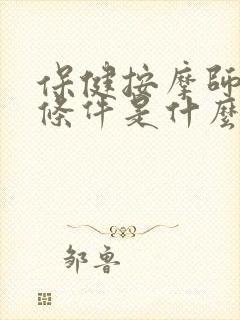 保健按摩師
條件是什麼
鄒魯